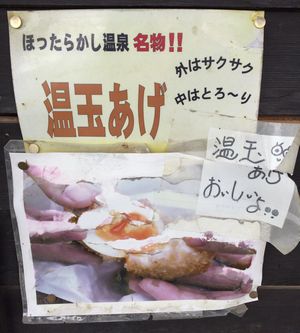 ほったらかし温泉 名物!!
外はサクサク
中はとろ〜り
温玉あげ
温玉
あげ
おいしいよ